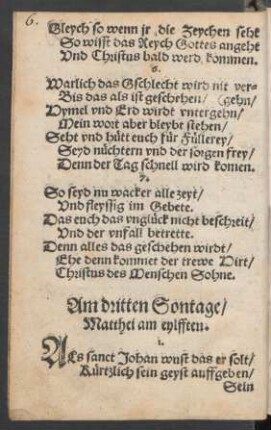 6.
Gleych so wenn jr die Zeychen seht
So wisst das Reych Gottes angeht
Vnd Christus bald werd kommen.
6.
Warlich das Gschlecht wird nit ver-
Bis das als ist geschehen/ (gehn/
Hymel vnd Erd wirdt vntergehn/
Mein wort aber bleybt stehen/
Seht vnd hütt euch für Füllerey/
Seyd nüchtern vnd der sorgen frey/
Denn der Tag schnell wird komen.
7.
So seyd nu wacker alle zeyt/
Vnd fleyssig im Gebete.
Das euch das vnglück nicht beschreit/
Vnd der vnfall betrette.
Denn alles das geschehen wirdt/
Ehe denn kommet der trewe Hirt/
Christus des Menschen Sohne.
Am dritten Sontage/
Matthei am eylfften.
1.
Als sanct Johan wust das er solt/
Kürtzlich sein geyst auffgeben/
Sein